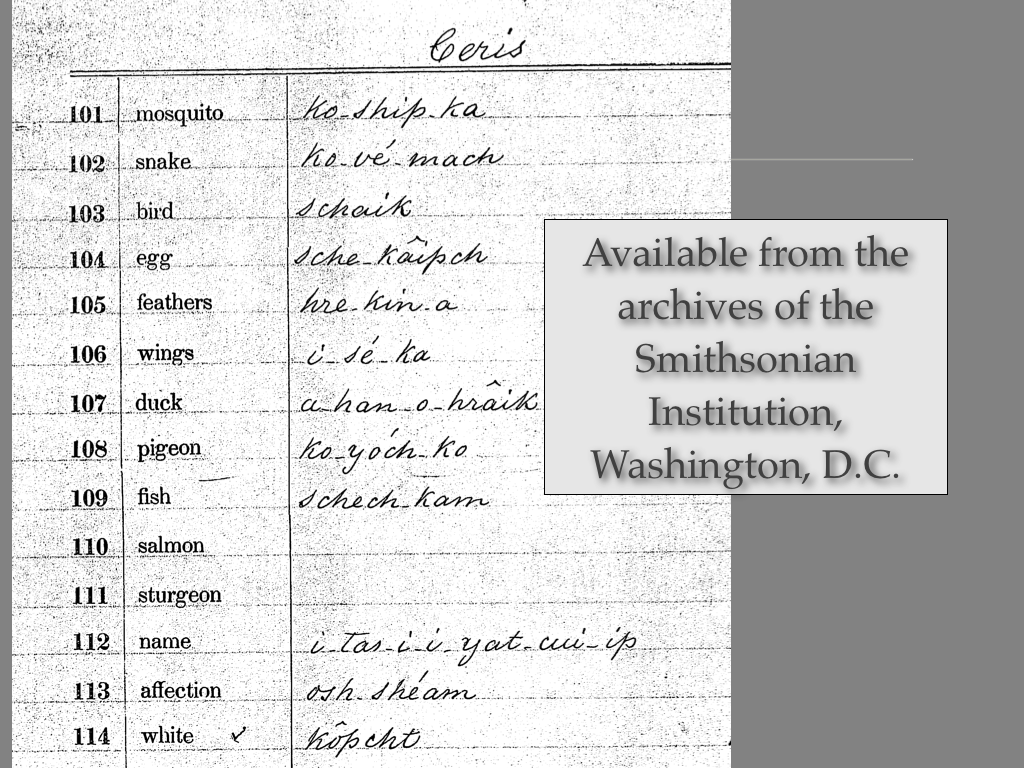 Ceris
101 mosquito ko-ship-ka
102 snake ko-vé-mach
103 bird schaik
104 egg sche-kâipch
105 feathers hre-kin-a
106 wings i-sé-ka
107 duck a-han-o-hrâik
108 pigeon ko-yóch-ko
109 fish schech-kam
110 salmon
111 sturgeon
112 name i-tas-i-i-yat-cui-ip
113 affection osh-shéam
114 white ✓ kôpcht
Available from the
archives of the
Smithsonian
Institution,
Washington, D.C.